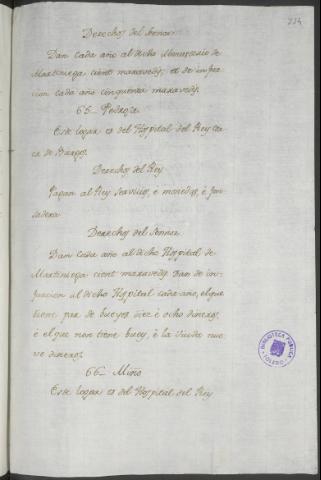 224
Derechos del Señor
Dan cada año al dicho Monasterio de
Martiniega cient maravedis, et de infur
cion cada año cinquenta maravedis.
65_ Pedroza
Este logar es del Hospital del Rey cer
ca de Burgos.
Derechos del Rey
Pagan al Rey servicios, è monedas, è fon
sadera
Derechos del Sennor
Dan cada año al dicho Hospital de
Martiniega cient maravedis. Dan de in-
furcion al dicho Hospital cada año, el que
tiene par de bueyes diez è ocho dineros,
è el que non tiene buey, è la viuda nue
ve dineros.
66_ Miño
Este logar es del Hospital del Rey
BIBLIOTECA PUBLICA
TOLEDO